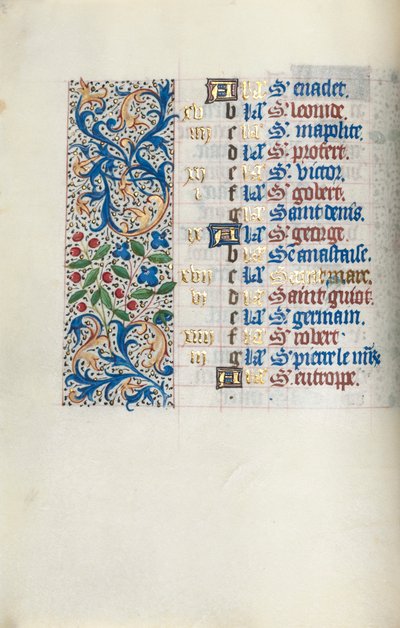 A kl St enaclet.
xv b kl St leonide.
iiij c kl St mapolite.
d kl St protert.
xij e kl St victor.
i f kl St gobert.
g kl Saint denis.
ix A kl St george.
b kl Ste anastaise.
xvij c kl marc
vi d kl Saint quiot.
e kl St germain.
xiiij f kl St robert
iij g kl St pierre le
A kl St eutroppe.